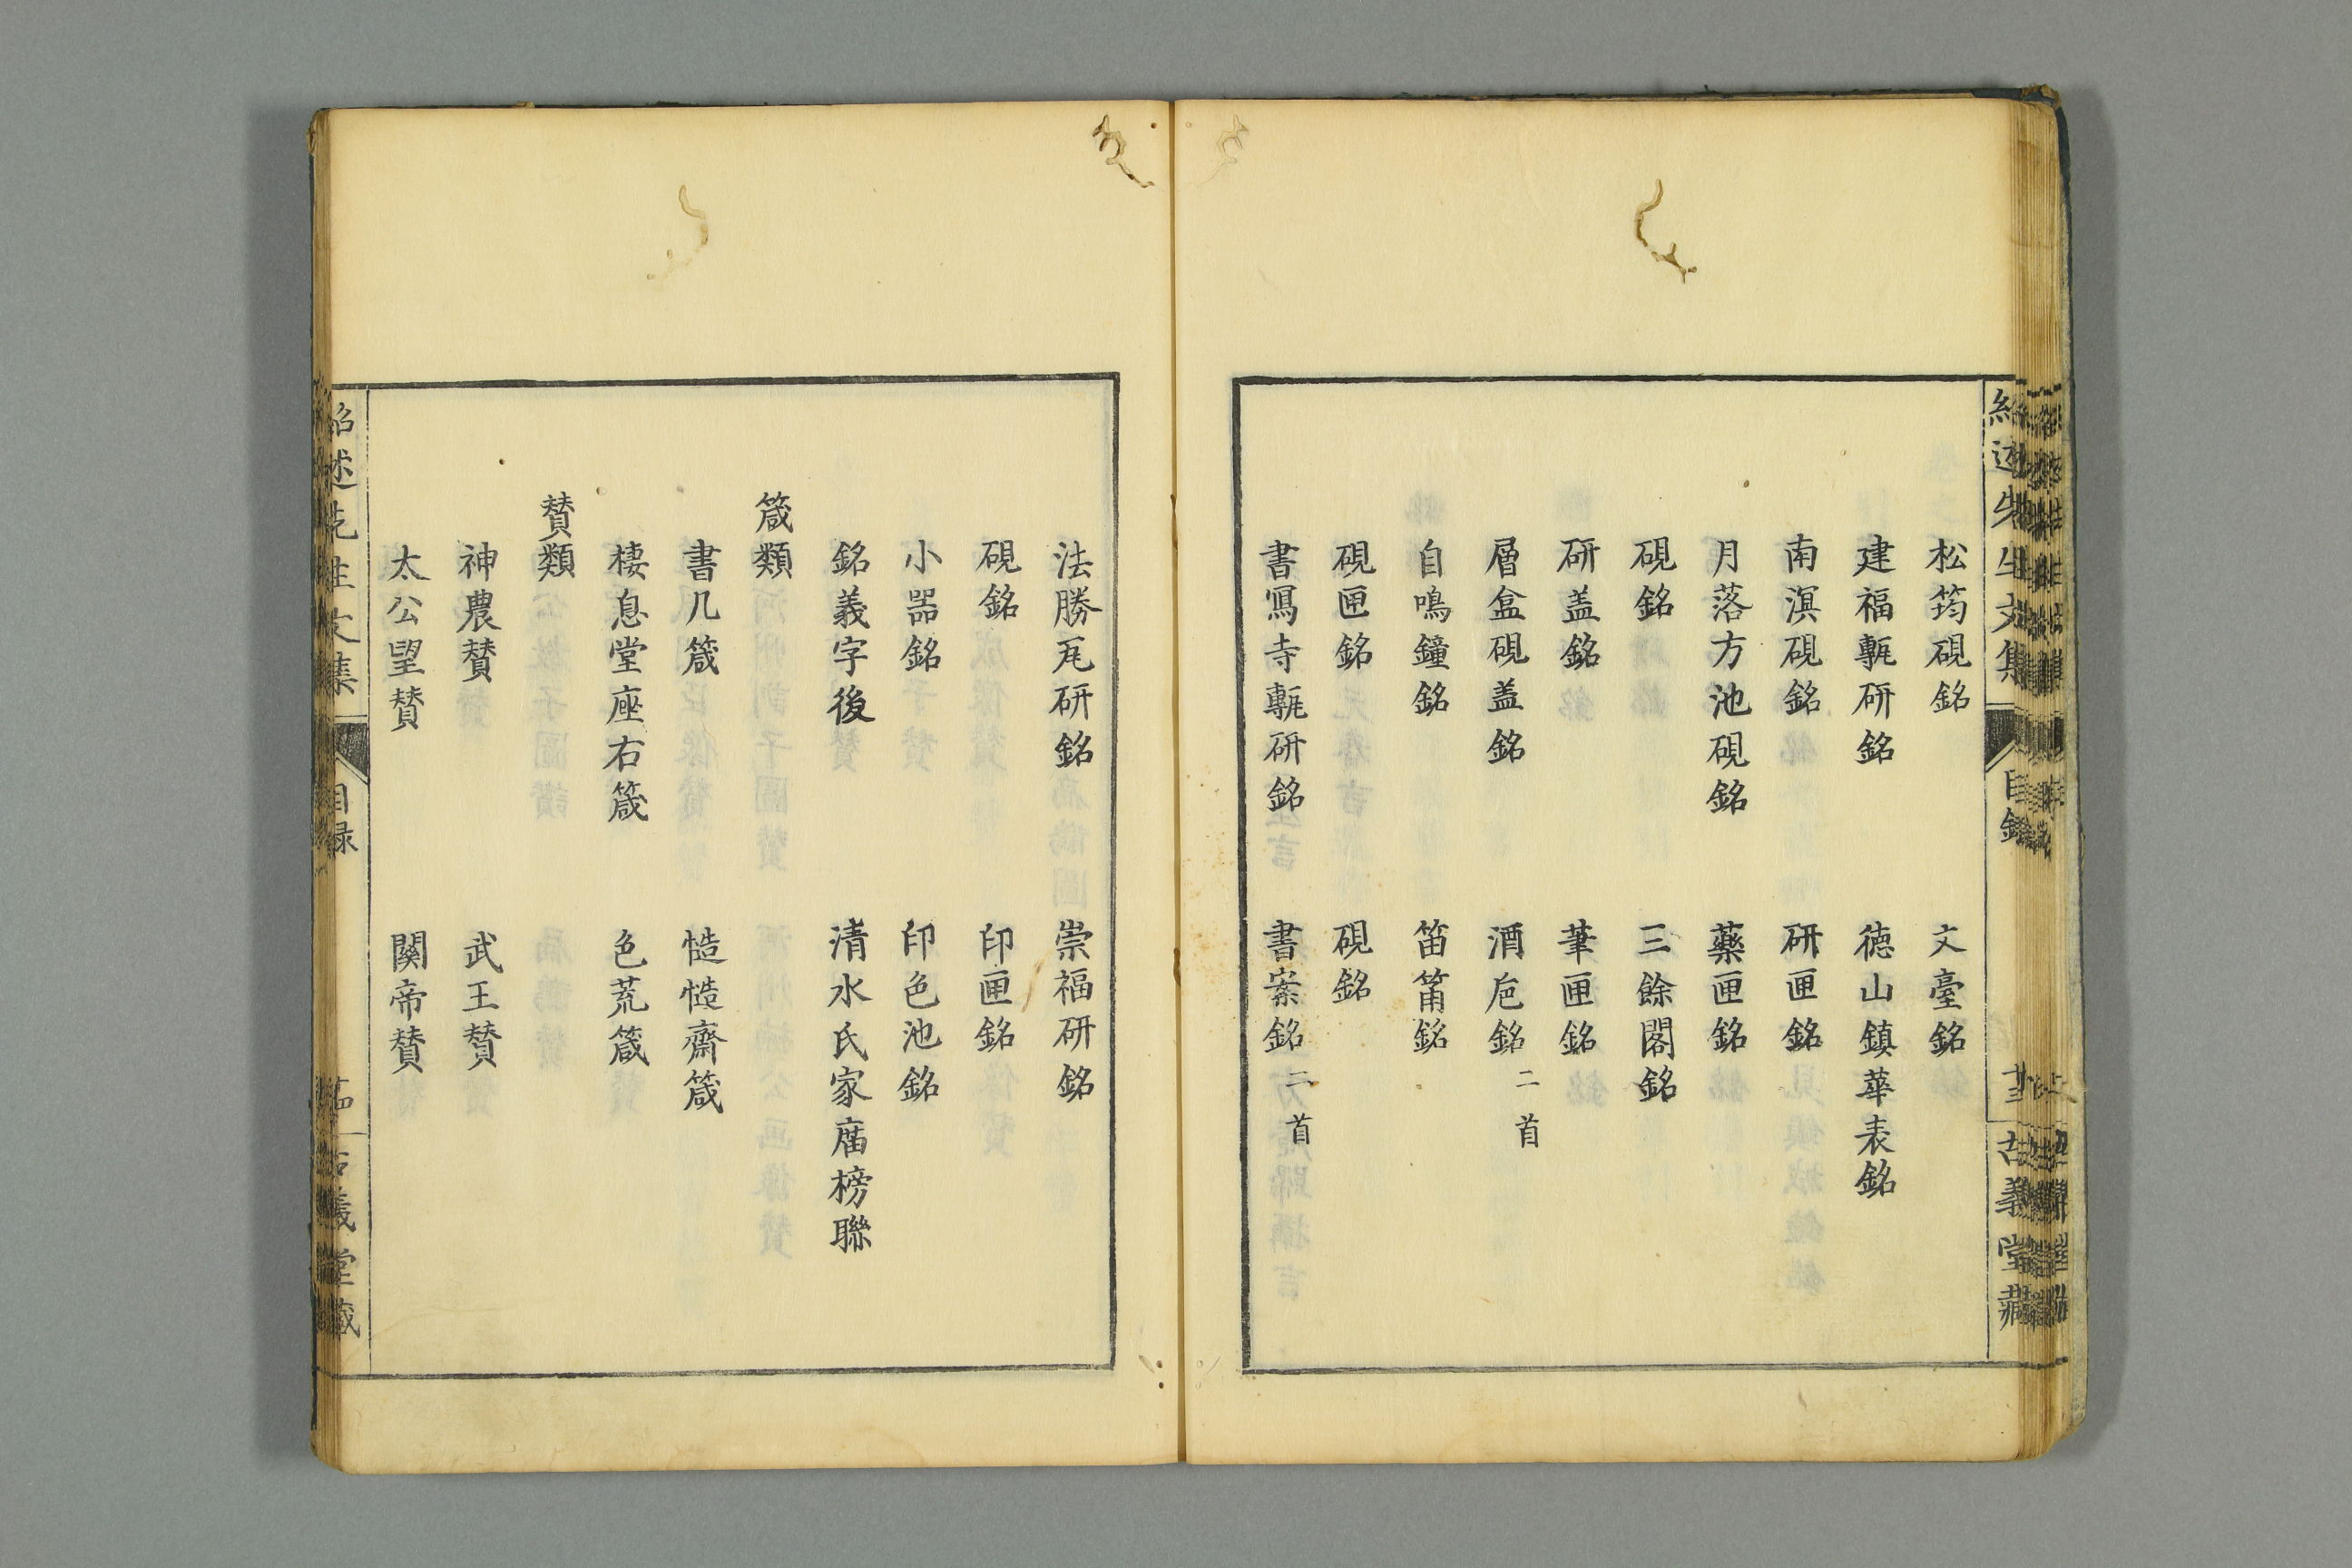 松筠硯銘　文臺銘
建福甎研銘　徳山鎮華表銘
南溟硯銘　研匣銘
月落方池硯銘　藥匣銘
硯銘　三餘閣銘
研盖銘　筆匣銘
層盒硯盖銘　酒巵銘二首
自鳴鐘銘　笛筩銘
硯匣銘　硯銘
書寫寺甎研銘　書案銘二首
法勝瓦研銘　崇福研銘
硯銘　印匣銘
小器銘　印色池銘
銘義字後　清水氏家庿榜聯
箴類
書几箴　慥慥齋箴
棲息堂座右箴　色荒箴
賛類
神農賛　武王賛
太公望賛　關帝賛
紹述先生文集　目録　古義堂藏